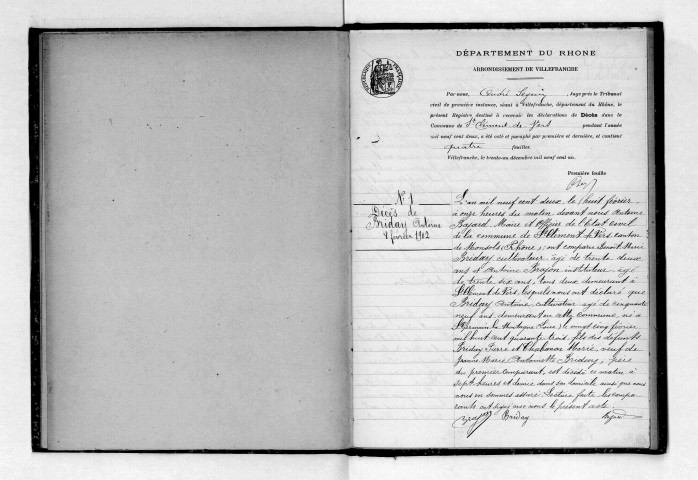 DÉPARTEMENT DU RHONE
ARRONDISSEMENT DE VILLEFRANCHE
RÉPUBLIQUE FRANÇAISE
Par nous, André, Juge près le Tribunal
civil de première instance, séant à Villefranche, département du Rhône, le
présent Registre destiné à recevoir les déclarations de Décès dans le
Commune de St Clément-de-Vers pendant l'année
mil neuf cent deux, a été coté et paraphé par première et dernière, et contient
quatre feuilles.
Villefranche, le trente-un décembre mil neuf cent un.
Première feuille
N° 1
Décès de
Briday Antoine
8 février 1902
L'an mil neuf cent deux le huit février
à onze heures du matin, devant nous Antoine
Maire et officier de l'état civil
de la commune de St Clément de Vers canton
de Monsols (Rhône), ont comparu Benoit Marie
Briday, cultivateur, âgé de trente deux
ans et Antoine instituteur âgé
de trente six ans, tous deux demeurant à
St Clément de Vers, lesquels nous ont déclaré que
Briday Antoine, cultivateur âgé de cinquante
neuf ans demeurant en cette commune, né à
St Germain la Montagne Loire le vingt cinq février
mil huit cent quarante trois, fils des défunts
Briday Pierre et Marie, veuf de
Jeanne Marie Antoinette, père
du premier comparant, est décédé ce matin à
sept heures et demie dans son domicile ainsi que nous
nous en sommes assuré. Lecture faite les compa-
rants ont signé avec nous le présent acte.
Briday